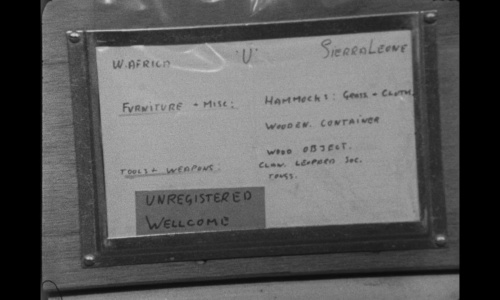 W. AFRICA 'U' SIERRA LEONE
FURNITURE + MISC: HAMMOCKS: GRASS + CLOTH.
WOODEN. CONTAINER
WOOD OBJECT.
TOOLS + WEAPONS: CLAW. LEOPARD SOC.
TONGS.
UNREGISTERED
WELLCOME